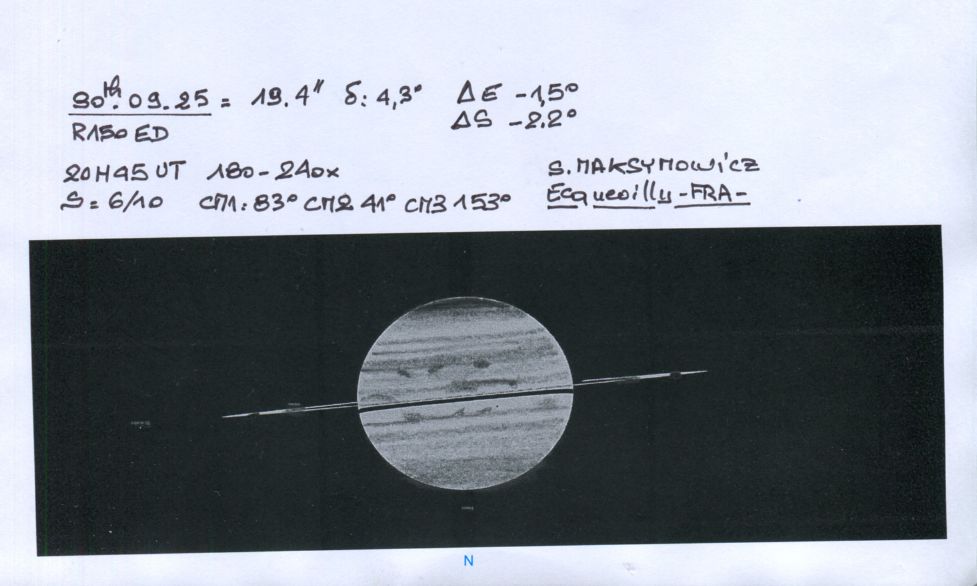 30th. 09. 25 = 19.4" δ: 4,3° ΔE -1,5°
ΔS -2.2°
R150 ED
20H45 UT 180-240x S. MAKSYMOWICZ
S= 6/10 CM1: 83° CM2 41° CM3 153° Ecquevilly -FRA-
N